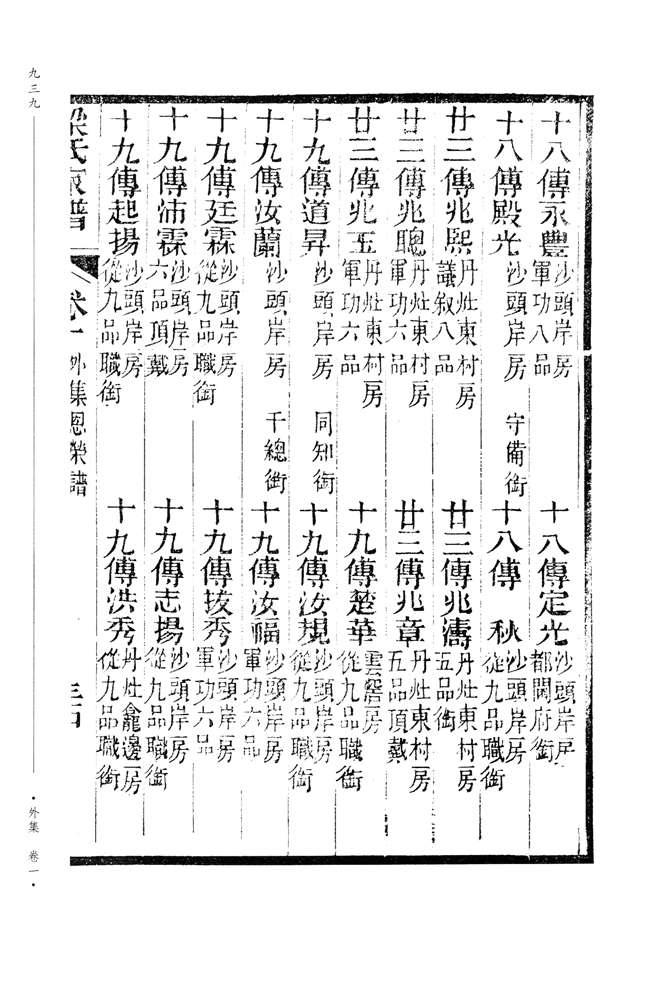 十八傳永豐 沙頭岸房 軍功八品
十八傳定光 沙頭岸房 都閫府銜
十八傳殿光 沙頭岸房 守備銜
十八傳 秋 沙頭岸房 從九品職銜
廿三傳兆熙 丹灶東村房 議敘八品
廿三傳兆濤 丹灶東村房 五品銜
廿三傳兆聰 丹灶東村房 軍功六品
廿三傳兆章 丹灶東村房 五品頂戴
廿三傳兆玉 丹灶東村房 軍功六品
十九傳楚華 雲滘房 從九品職銜
十九傳道昇 沙頭岸房 同知銜
十九傳汝規 沙頭岸房 從九品職銜
十九傳汝蘭 沙頭岸房 千總銜
十九傳汝福 沙頭岸房 軍功六品
十九傳廷霖 沙頭岸房 從九品職銜
十九傳拔秀 沙頭岸房 軍功六品
十九傳沛霖 沙頭岸房 六品頂戴
十九傳志揚 沙頭岸房 從九品職銜
十九傳起揚 沙頭岸房 從九品職銜
十九傳洪秀 丹灶龕邊房 從九品職銜
梁氏家譜 卷一 外集恩榮譜 三四
九三九
·外集 卷一·